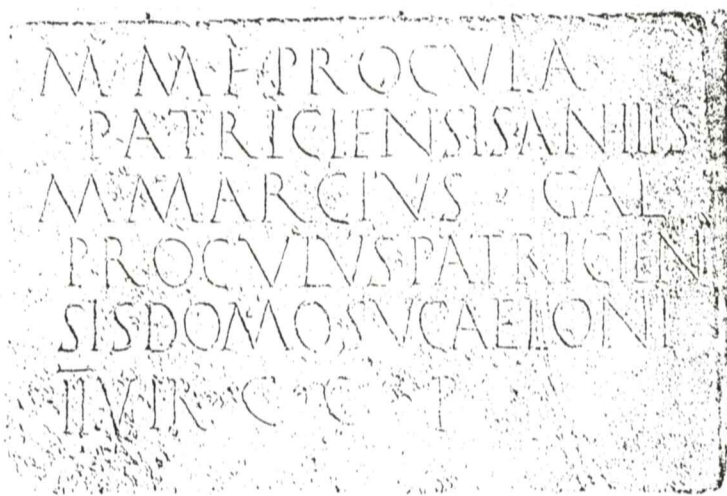 M M F PROCVLA
PATRICIENSIS AN IIIS
M MARCIVS GAL
PROCVLVS PATRICIEN
SIS DOMO SVCAELONI
IIVIR C C P